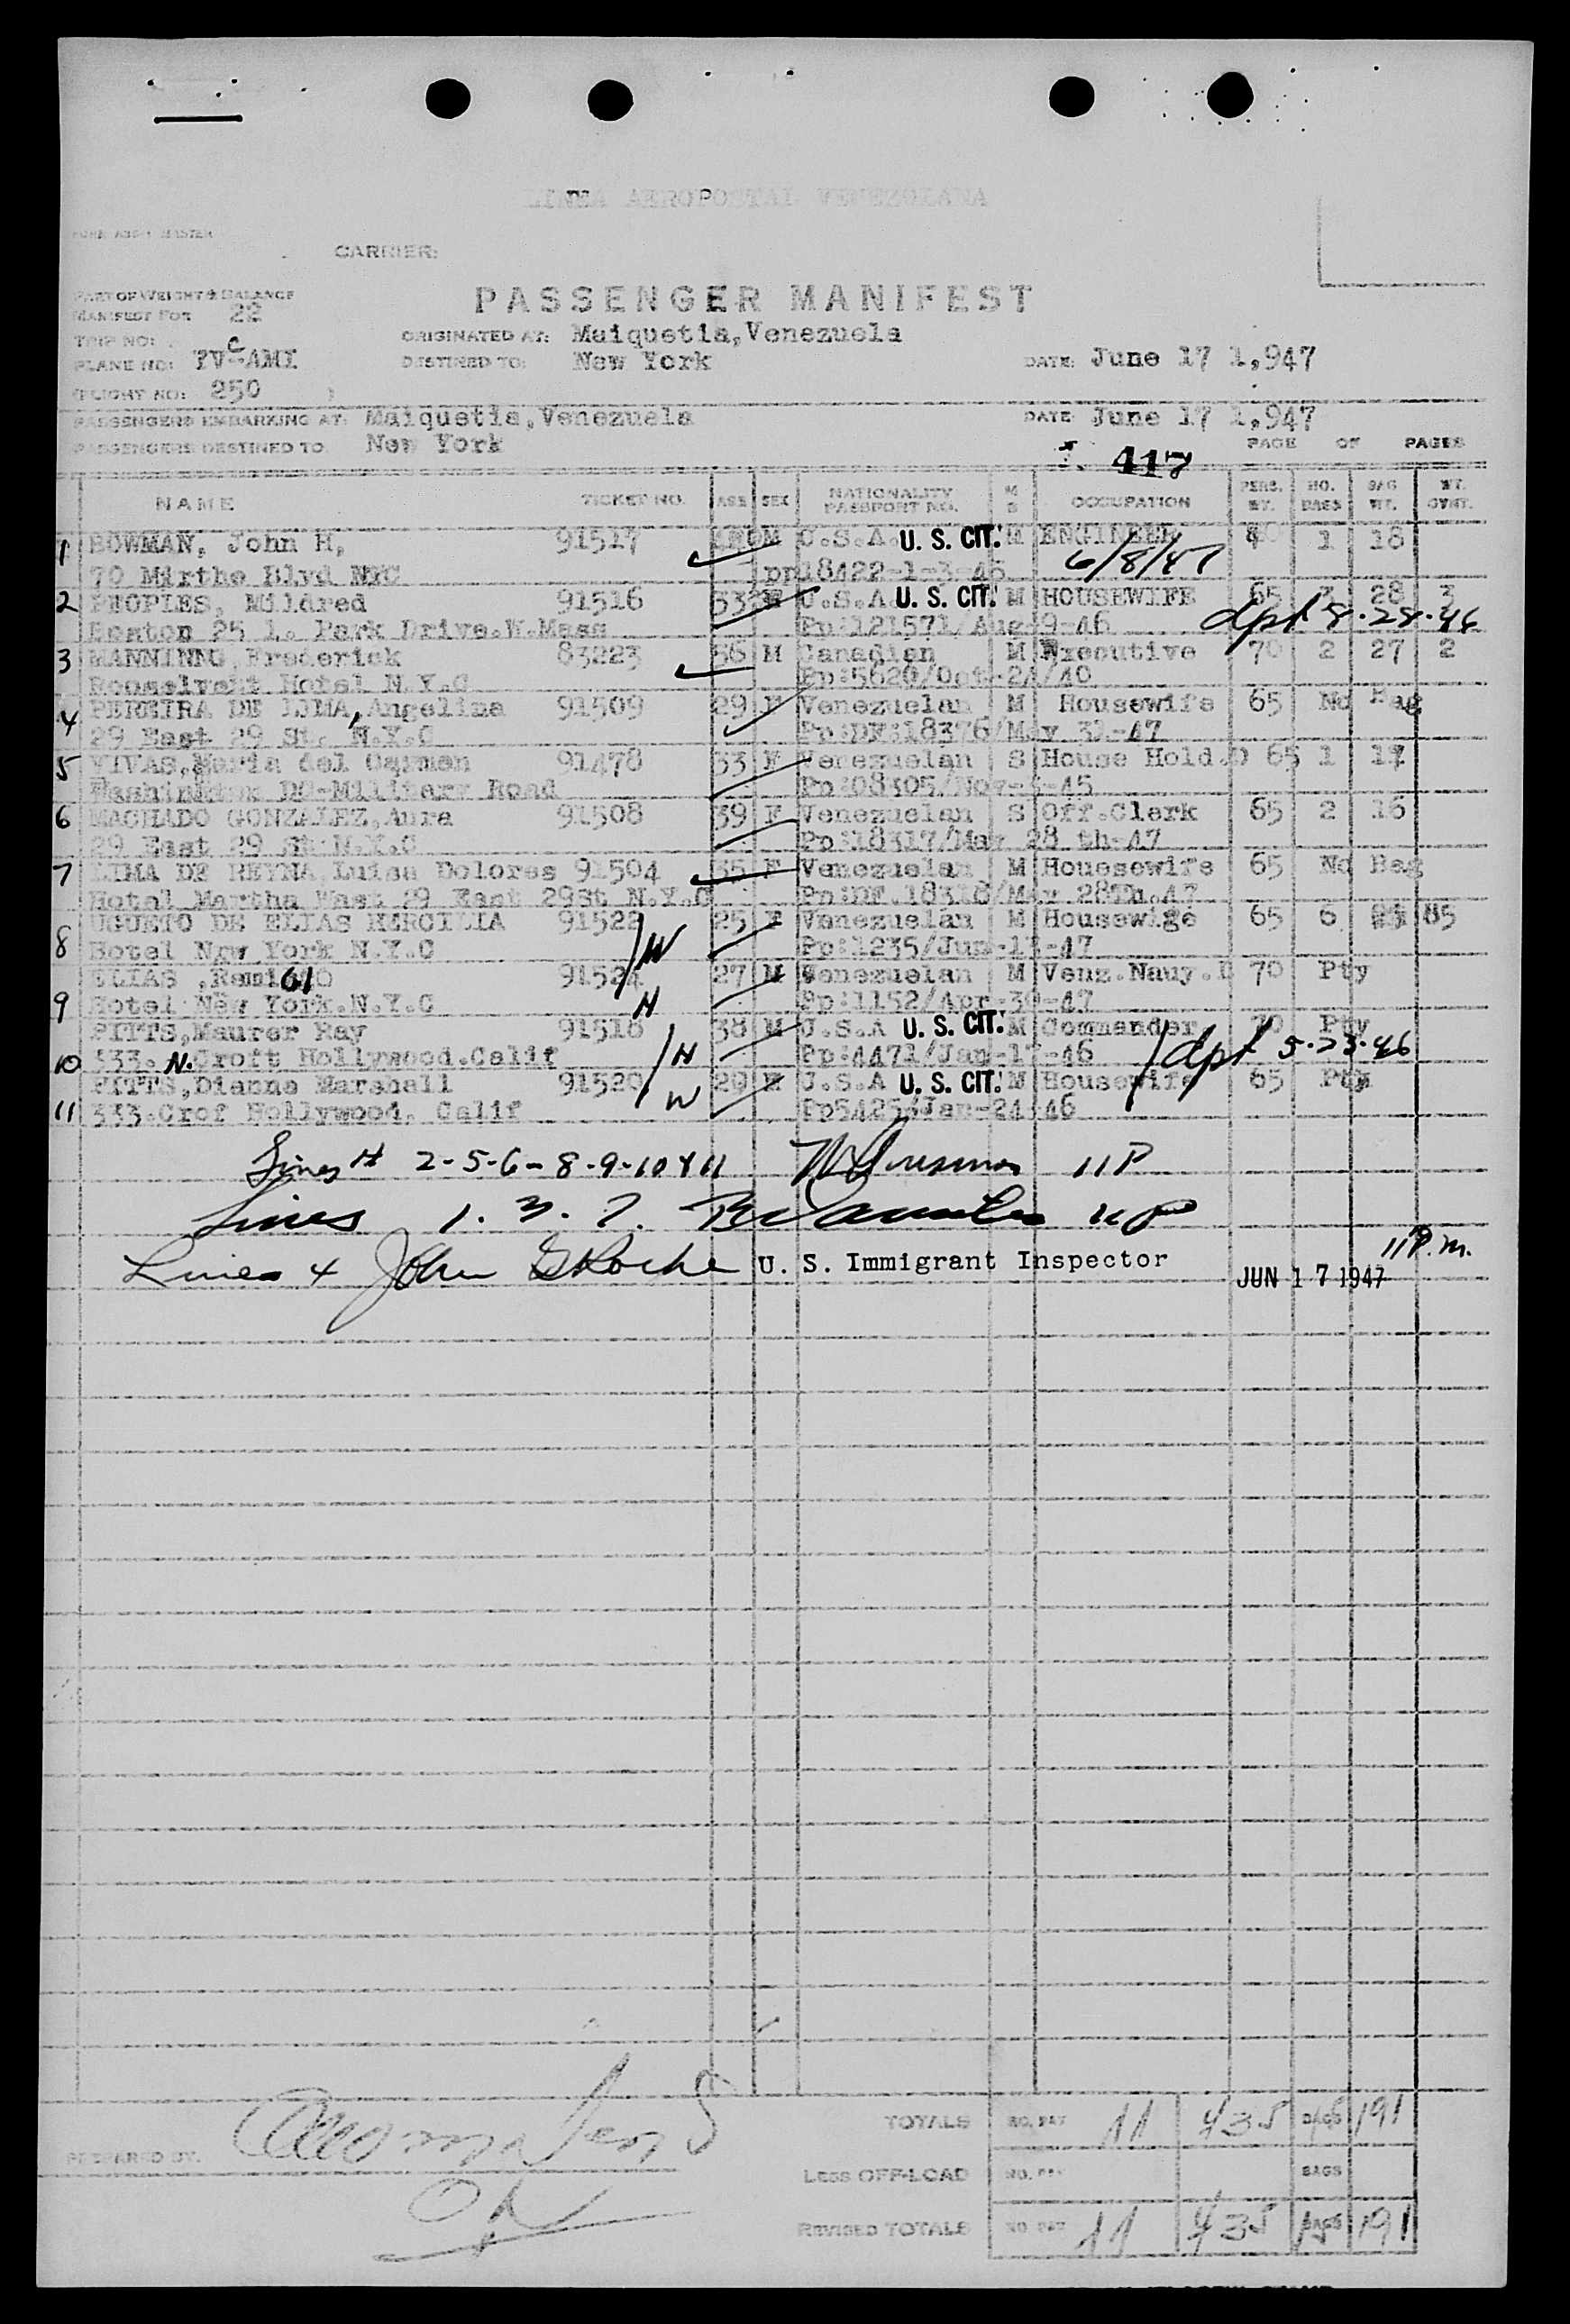 LINEA AEROPOSTAL VENEZOLANA
CARRIER:
PART OF WEIGHT & BALANCE
MANIFEST FOR 22
PASSENGER MANIFEST
TRIP NO:
ORIGINATED AT: Maiquetia, Venezuela
PLANE NO: YVC-AMI
DESTINED TO: New York
DATE: June 17 1,947
(FLIGHT NO: 250 )
PASSENGERS EMBARKING AT: Maiquetia, Venezuela
DATE: June 17 1,947
PASSENGERS DESTINED TO New York
PAGE OF PAGES
417
NAME TICKET NO. AGE SEX NATIONALITY PASSPORT NO. M S OCCUPATION PERS. WT. NO. BAGS BAG WT. WT. OVWT.
1 BOWMAN, John H, 91517 M U.S.A. U. S. CIT. M ENGINEER 1 18
70 Mirthe Blvd NYC pp18422-1-3-45 6/8/47
2 PEOPLES, Mildred 91516 33 U.S.A U. S. CIT. M HOUSEWIFE 65 3 28 3
Boston 25 1. Park Drive.W.Mass Pp:121571/Aug-9-46 dpt 8-28-46
3 MANNINNG, Frederick 83223 56 M Canadian M Executive 70 2 27 2
Rooselvelt Hotel N.Y.C Pp:5620/Oct-24/40
4 PEREIRA DE LIMA, Angelina 91509 29 F Venezuelan M Housewife 65 No Bag
29 East 29 St. N.Y.C Pp:DF:18376/May 31-47
5 VIVAS, Maria del Carmen 91478 33 F Venezuelan S House Hold.D 65 1 17
Washington DC-Military Road Pp:08305/Nov-5-45
6 MACHADO GONZALEZ, Aura 91508 39 F Venezuelan S Off.Clerk 65 2 16
29 East 29 St.N.Y.C Pp:18317/May 28 th-47
7 LIMA DE REYNA, Luisa Dolores 91504 35 F Venezuelan M Housewife 65 No Bag
Hotel Martha Wast 29 East 29St N.Y.C Pp:DF.18318/May 28Th.47
UGUETO DE ELIAS HERCILIA 91522 25 F Venezuelan M Housewige 65 6 85
8 Hotel New York N.Y.C Pp:1235/Jun-17-47
ELIAS , 91524 27 M Venezuelan M Venz.Nauy. 70 Pty
9 Hotel New York.N.Y.C Pp:1152/Apr-30-47
PITTS, Maurer Ray 91518 38 M U.S.A U. S. CIT. M Commander 70 Pty
10 333. N. Croft Hollywood.Calif Pp:4471/Jan-17-46 dpt 5-23-46
PITTS, Dianne Marshall 91520 29 U.S.A U. S. CIT. M Housewife 65 Pty
11 333.Crof Hollywood. Calif Pp54253/Jan-24-46
Lines # 2-5-6-8-9-10 & 11 11P
Lines 1. 3. 7. 11 P
Lines 4 John G Roche U. S. Immigrant Inspector 11 P.m.
JUN 17 1947
TOTALS NO. PAX 11 735 BAGS 191
PREPARED BY:
LESS OFF-LOAD NO. PAX BAGS
OK
REVISED TOTALS NO. PAX 11 735 BAGS 15 191